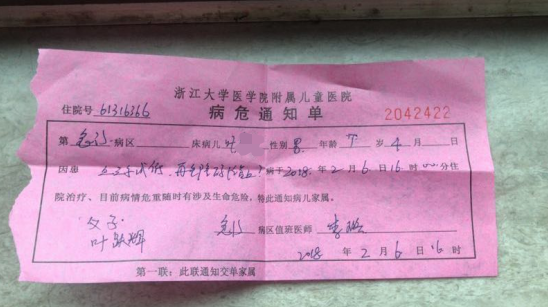 浙江大学医学院附属儿童医院
住院号 61316366 病危通知单 2042422
第 急诊 病区 床病儿 性别 男 年龄 岁 4 月 日
因患 病于 2018 年 2 月 6 日 16 时 分住
院治疗、目前病情危重随时有涉及生命危险，特此通知病儿家属。
父子
叶跃辉 急诊 病区值班医师 李
2018 年 2 月 6 日 16 时
第一联：此联通知交单家属